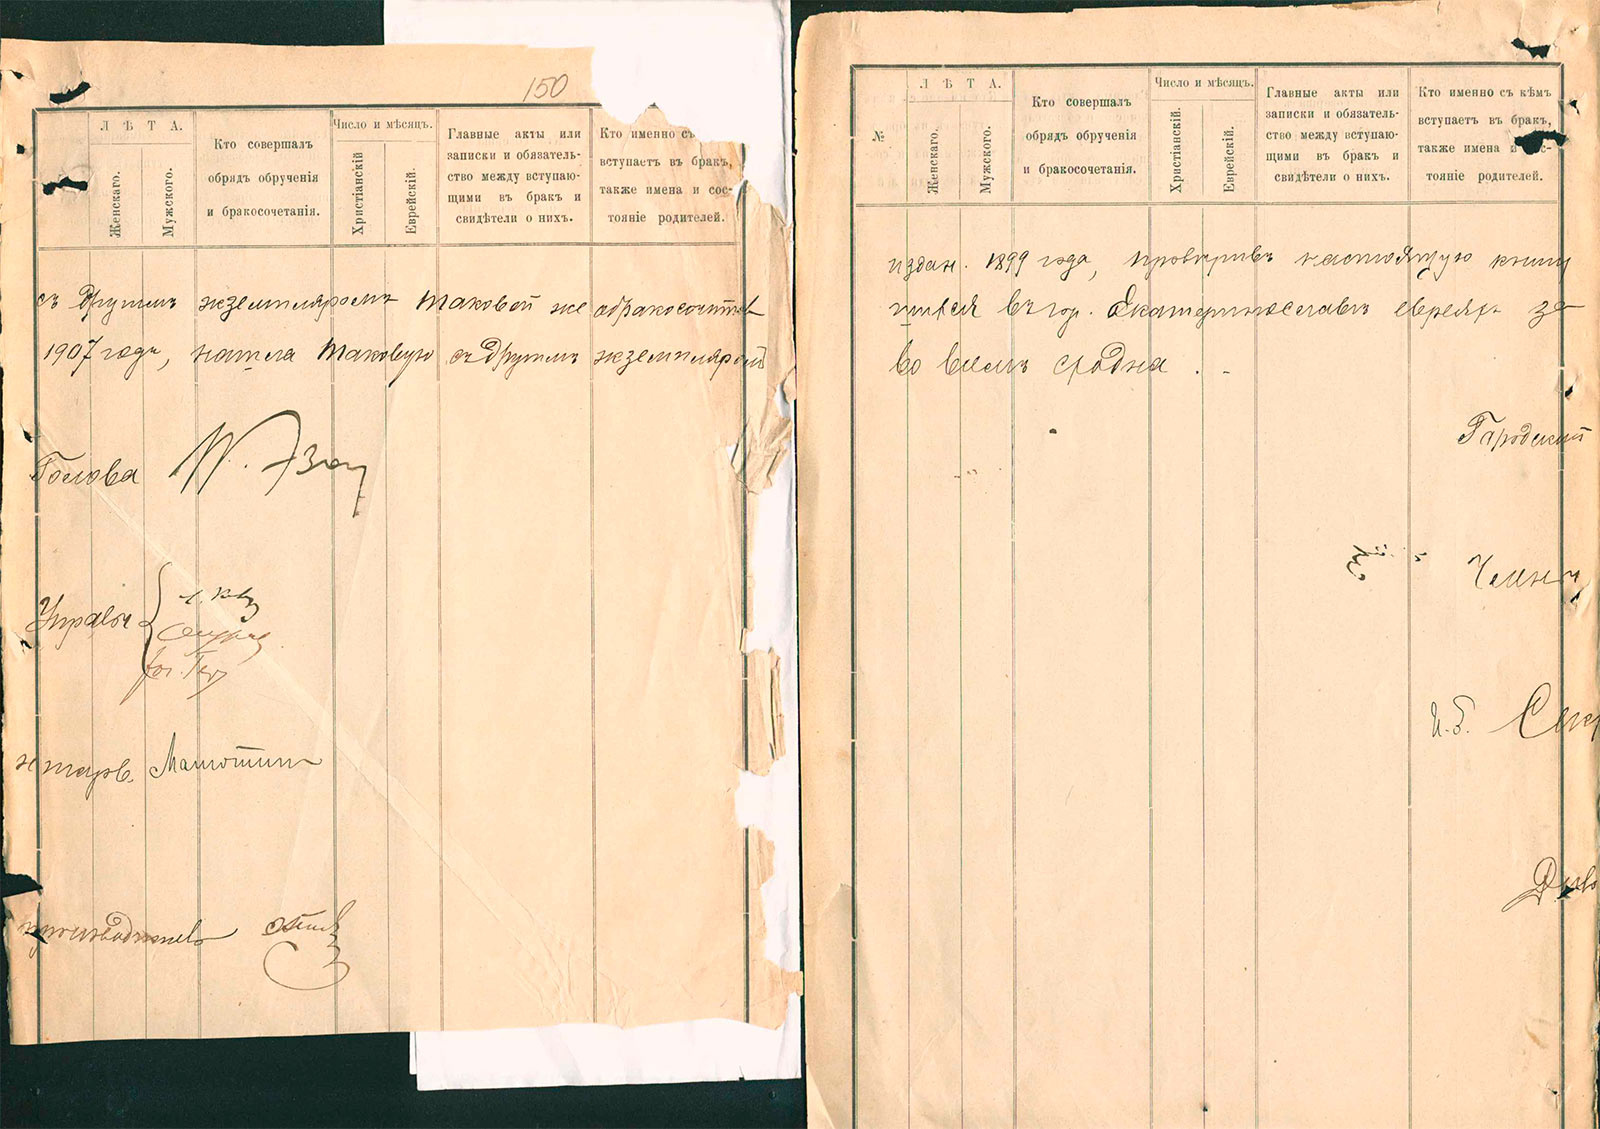 150
Л Ѣ Т А.
Женскаго.
Мужского.
Кто совершалъ
обрядъ обрученія
и бракосочетанія.
Число и мѣсяцъ.
Христіанскій
Еврейскій.
Главные акты или
записки и обязатель-
ство между вступаю-
щими въ бракъ и
свидѣтели о нихъ.
Кто именно съ
вступаетъ въ бракъ,
также имена и сос-
тояніе родителей.
съ другимъ экземпляромъ таковой же о бракосочетав
1907 годъ, нашла таковую съ другимъ экземпляромъ
Голова
Управы
производитель
№
Л Ѣ Т А.
Женскаго.
Мужского.
Кто совершалъ
обрядъ обрученія
и бракосочетанія.
Число и мѣсяцъ.
Христіанскій.
Еврейскій.
Главные акты или
записки и обязатель-
ство между вступаю-
щими въ бракъ и
свидѣтели о нихъ.
Кто именно съ кѣмъ
вступаетъ въ бракъ,
также имена и сос-
тояніе родителей.
издан. 1899 года, провѣривъ настоящую книгу
шихся въ гор. Екатеринославѣ евреяхъ за
во всемъ сходна.
Городской
Члены
И. Б. Секр
Дѣло